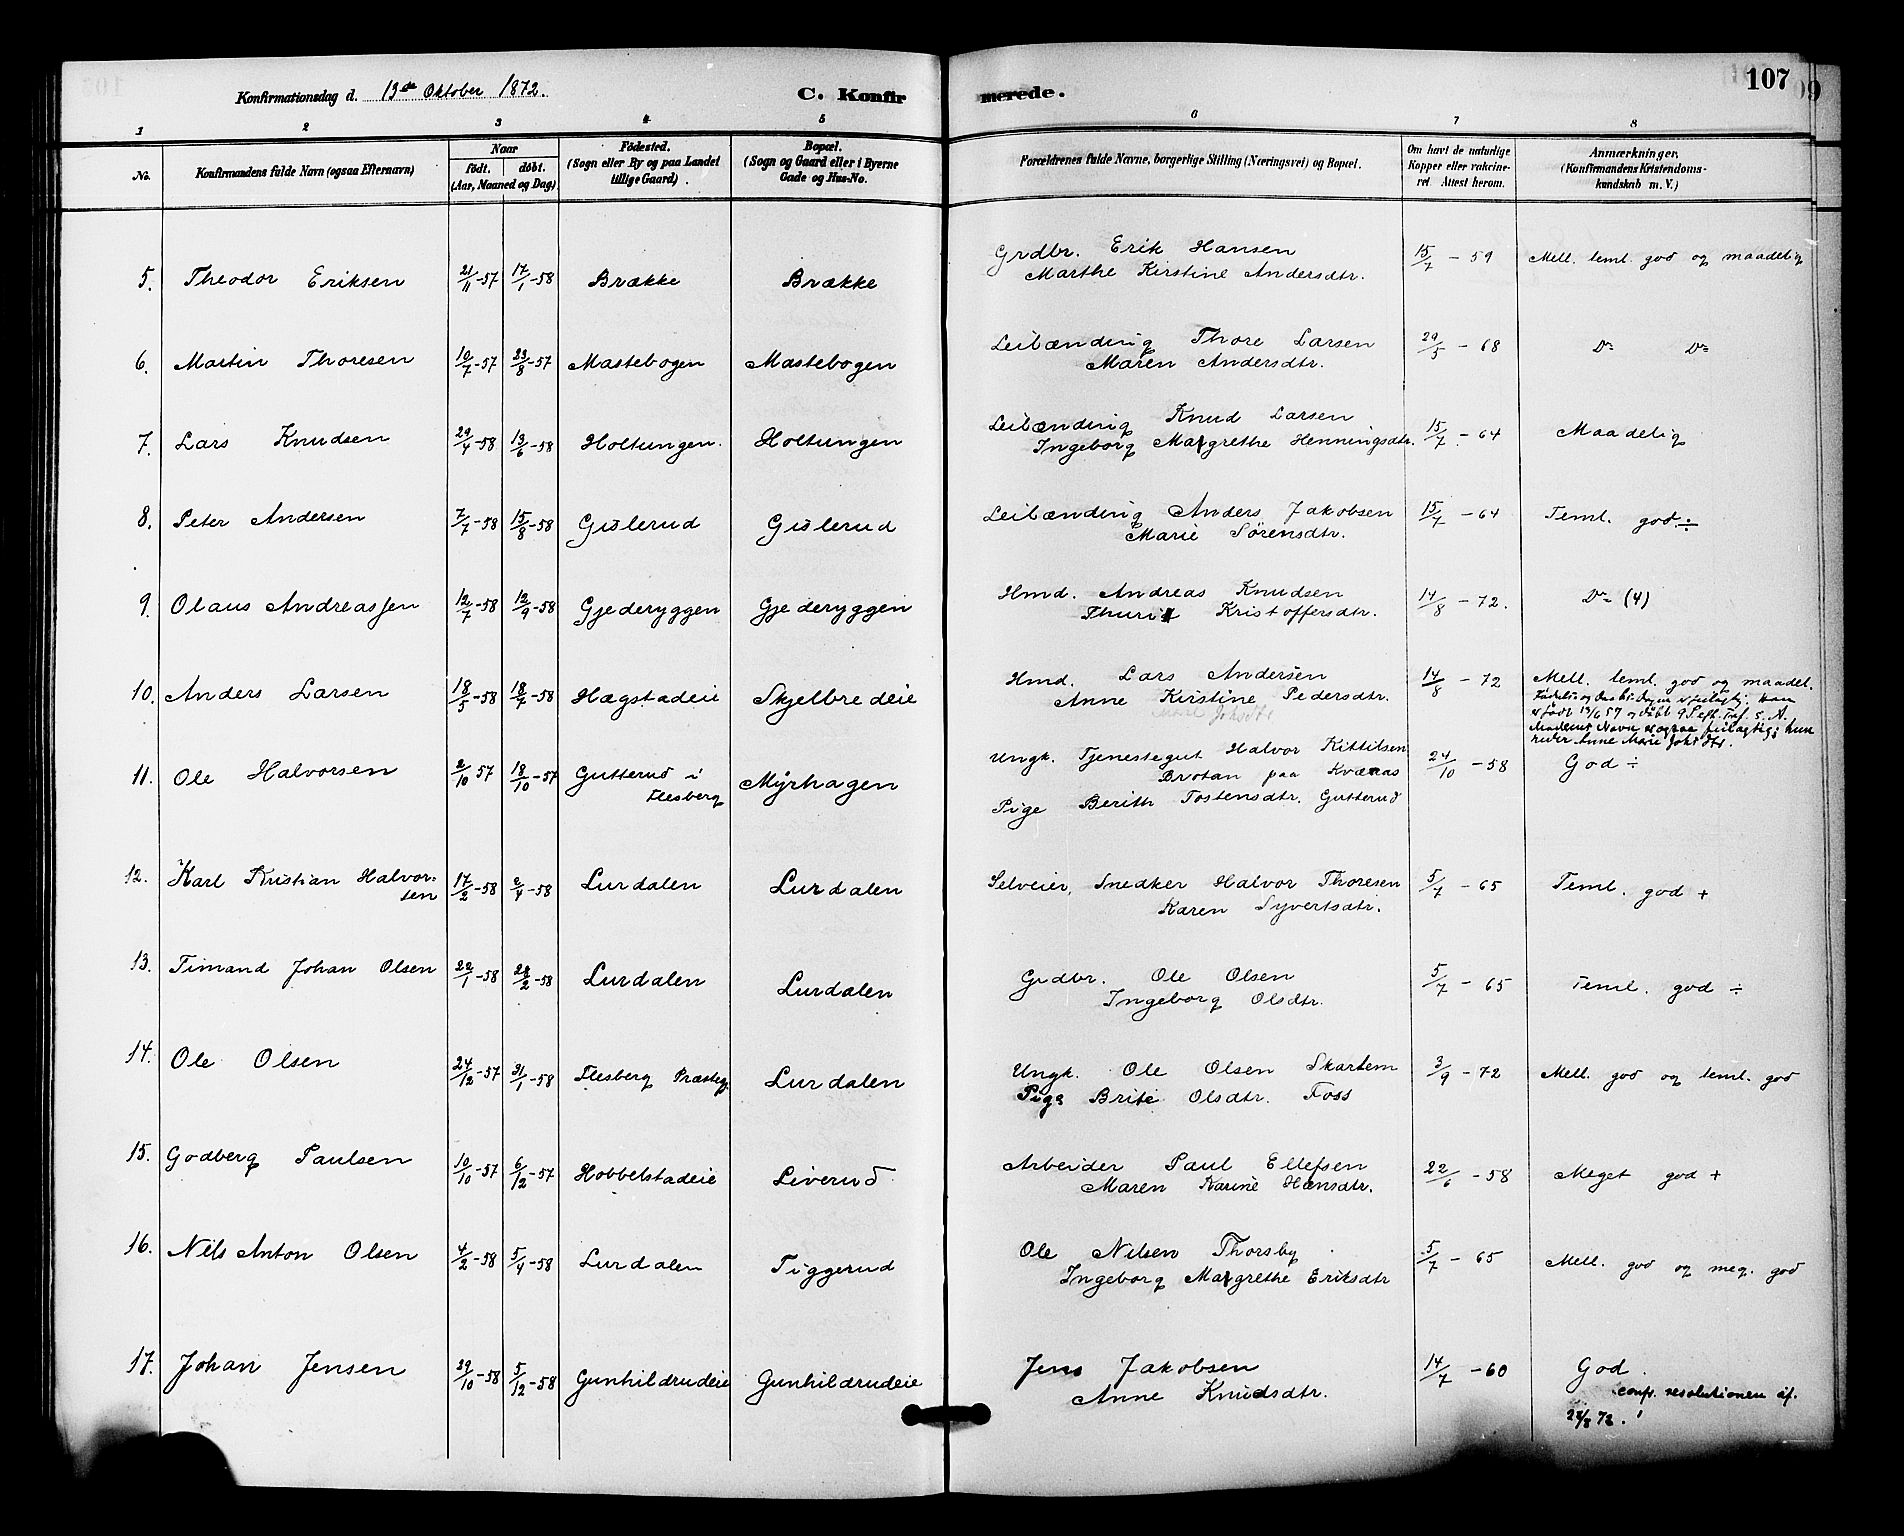 107
Konfirmationsdag d. 13de Oktober 1872.
C. Konfirmerede.
1 2 3 4 5 6 7 8
No.
Konfirmandens fulde Navn (ogsaa Efternavn)
Naar
födt. döbt.
(Aar, Maaned og Dag).
Födested.
(Sogn eller By og paa Landet
tillige Gaard).
Bopæl.
(Sogn og Gaard eller i Byerne
Gade og Hus-No.
Forældrenes fulde Navne, borgerlige Stilling (Næringsvei) og Bopæl.
Om havt de naturlige
Kopper eller vakcine-
ret Attest herom.
Anmærkninger.
(Konfirmandens Kristendoms-
kundskab m. V.)
5. Theodor Eriksen 21/11-57 17/1-58 Brække Brække Grdbr. Erik Hansen 15/7 - 59 Mell. teml. god og maadelig
Marthe Kirstine Andersdtr.
6. Martin Thoresen 10/7-57 23/8-57 Mastebogen Mastebogen Leilænding Thore Larsen 29/5 - 68 Do Do
Maren Andersdtr.
7. Lars Knudsen 29/4-58 13/6-58 Holtungen. Holtungen Leilænding Knud Larsen 15/7 - 64 Maadelig
Ingeborg Margrethe Henningsdtr.
8. Peter Andersen 7/7-58 15/8-58 Gislerud Gislerud Leilænding Anders Jakobsen 15/7 - 64 Teml. god ÷
Marie Sörensdtr.
9. Olaus Andreassen 12/7-58 12/9-58 Gjederyggen Gjederyggen Hmd. Andreas Knudsen 14/8 - 72. Do (4)
Thuri Kristoffersdtr.
10. Anders Larsen 18/5-58 18/7-58 Hægstadeie Skjelbredeie Hmd. Lars Andersen 14/8 - 72 Mell. teml. god og maadel.
Anne Kirstine Pedersdtr.
Navn ogsaa feilagtig; hun
Anne Marie Johsdtr.
11. Ole Halvorsen 2/10 57 18/10-57 Gutterud i Myrhagen Ungk. Tjenestegut Halvor Kittilsen 24/10 - 58 God ÷
Flesberg Brotan paa Kværnas
Pige Berith Tostensdtr. Gutterud
12. Karl Kristian Halvor- 17/2-58 2/4-58 Lurdalen Lurdalen Selveier, Snedker Halvor Thoresen 5/7 - 65 Teml. god +
sen Karen Syvertsdtr.
13. Timand Johan Olsen 22/1-58 28/2-58 Lurdalen Lurdalen Grdbr. Ole Olsen 5/7 - 65 Teml. god ÷
Ingeborg Olsdtr.
14. Ole Olsen 24/12-57 31/1-58 Flesberg Præsteg. Lurdalen Ungk. Ole Olsen Skartem 3/9 - 72 Mell. god og teml. god
Pige Brite Olsdtr. Foss
15. Godberg Paulsen 10/10-57 6/12-57 Hobbelstadeie Liverud Arbeider Paul Ellefsen 22/6 - 58 Meget god +
Maren Karine Hansdtr.
16. Nils Anton Olsen 4/2-58 5/4-58 Lurdalen Tiggerud Ole Nilsen Thorsby 5/7 - 65 Mell. god og meg. god
Ingeborg Margrethe Eriksdtr
17. Johan Jensen 29/10-58 5/12-58 Gunhildrudeie Gunhildrudeie Jens Jakobsen 14/7 - 60 God.
Anne Knudsdtr. conf. resolutionen af.